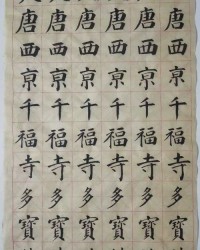 唐唐唐唐唐
西西西西西
京京京京京
千千千千千
福福福福福
寺寺寺寺寺
多多多多多
寶寶寶寶寶